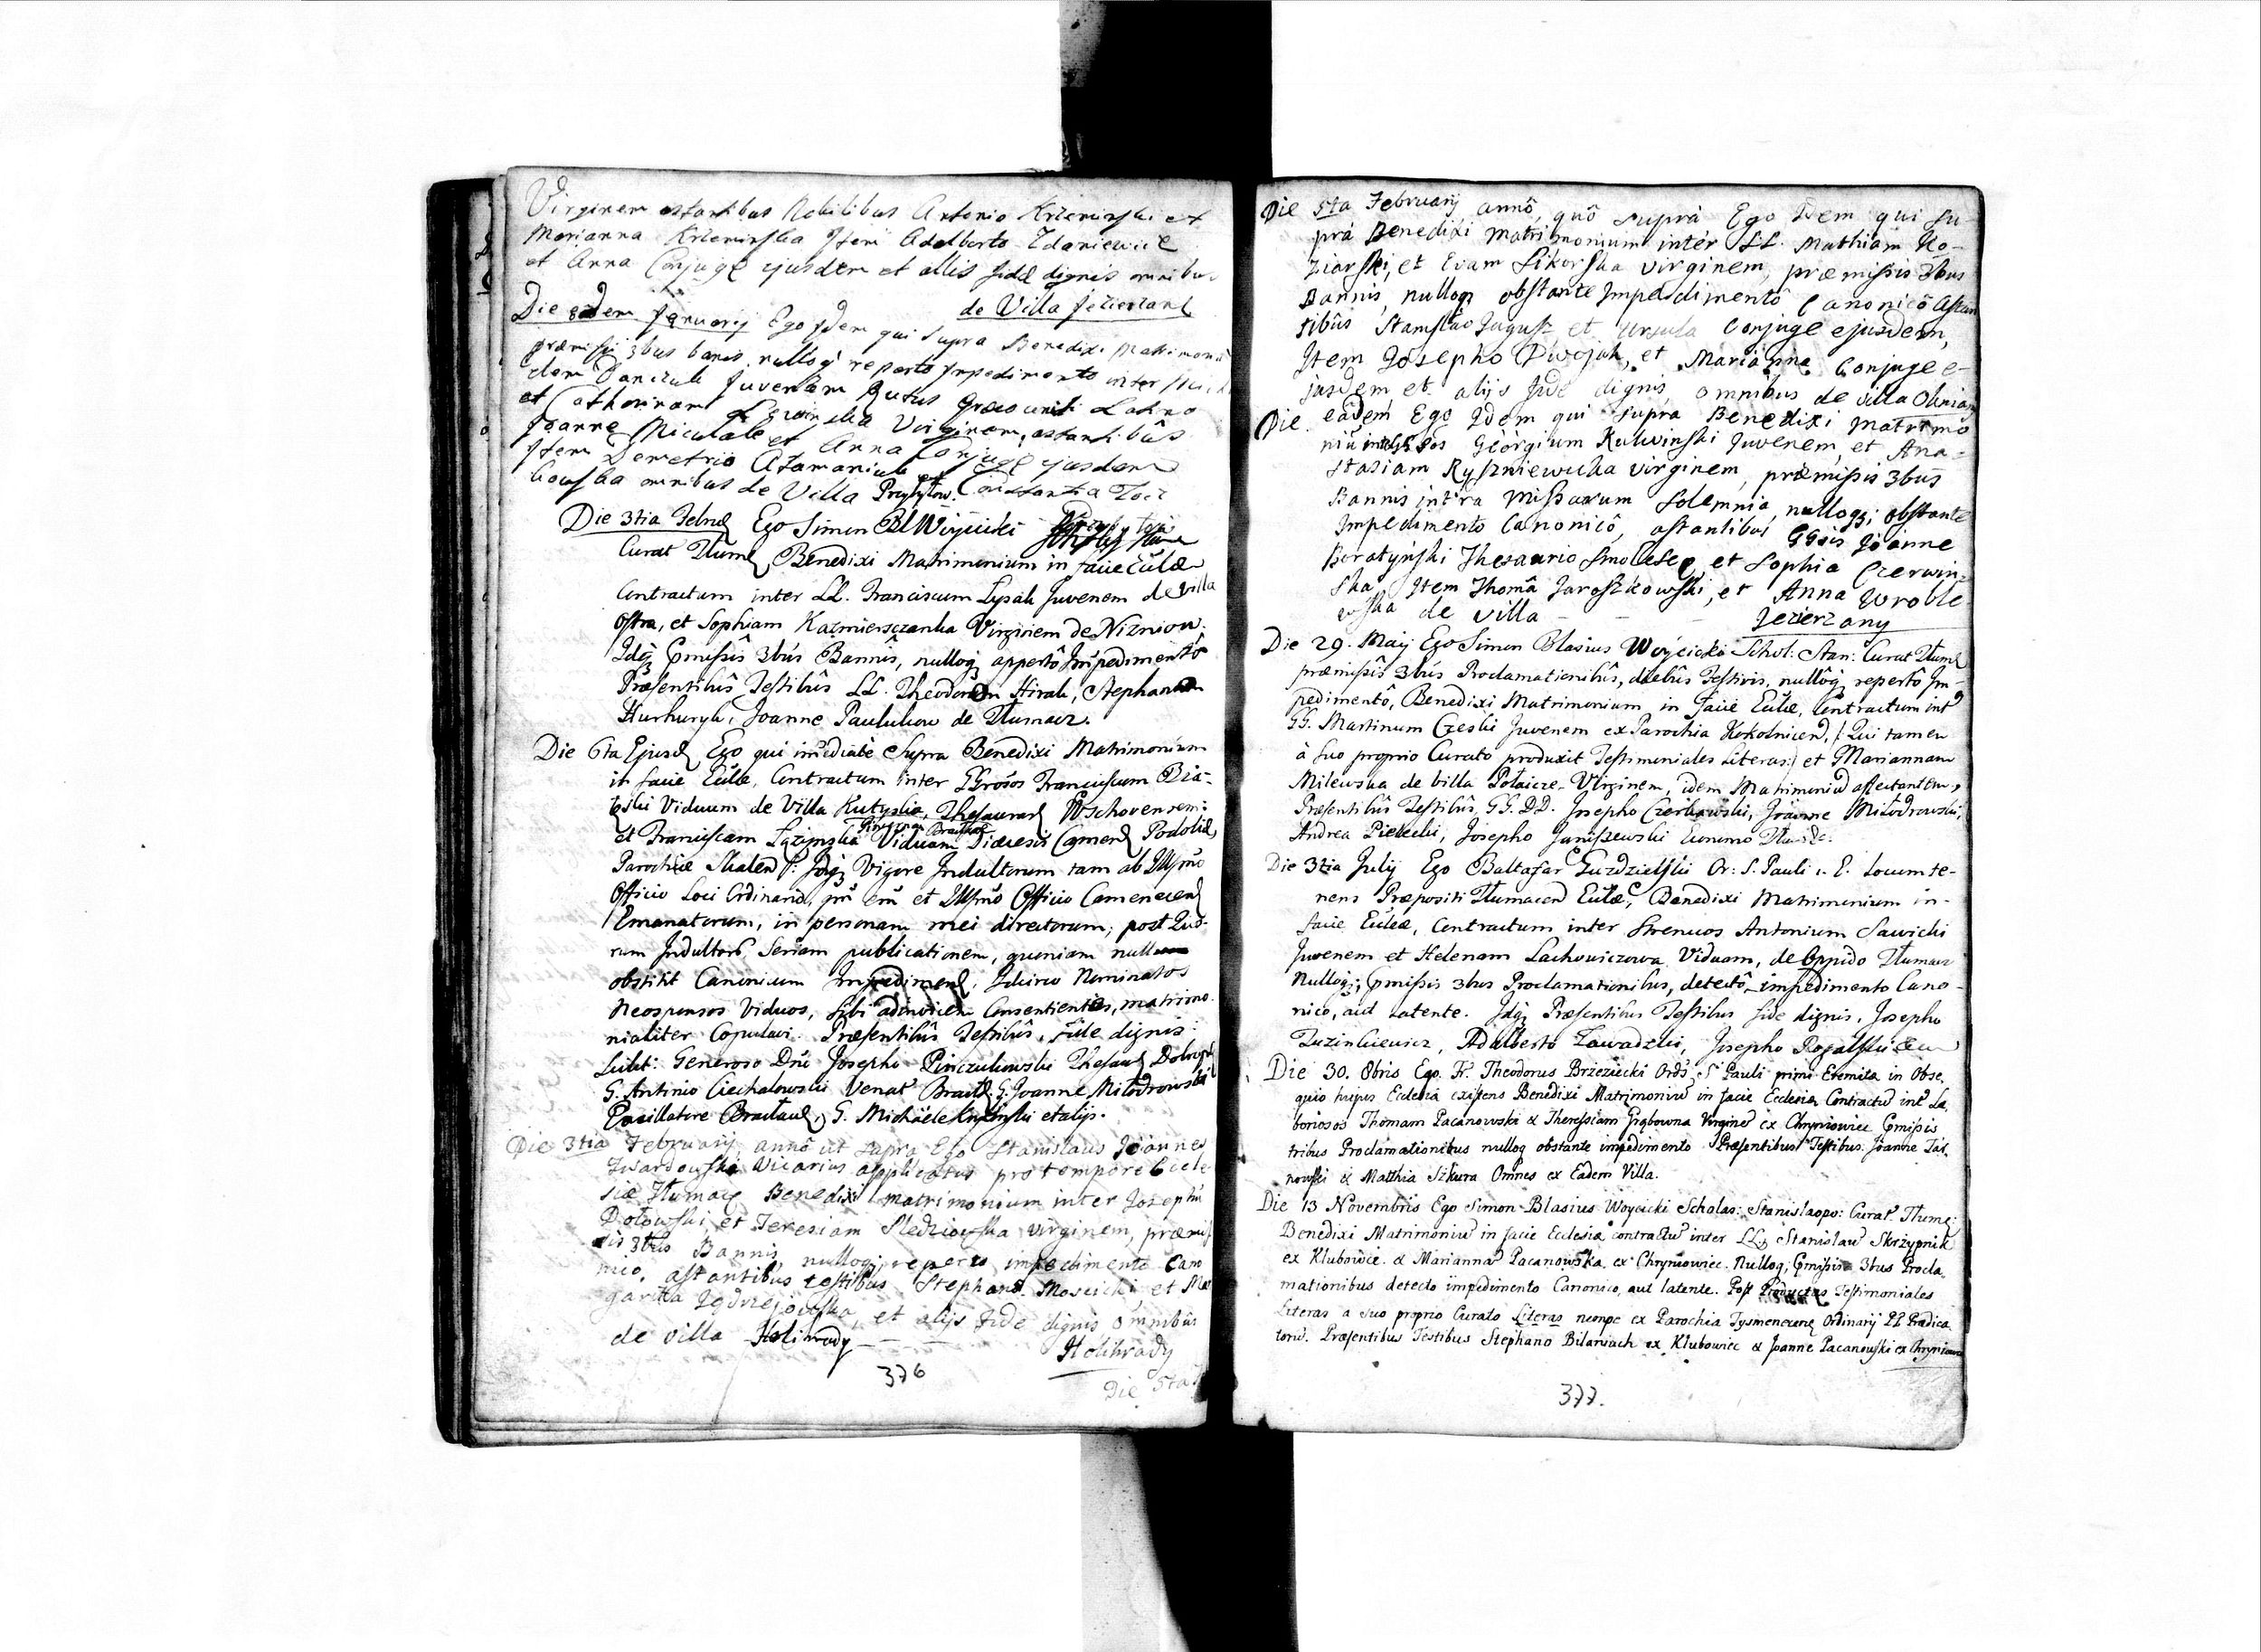 Virginem astantibus Nobilibus Antonio Krzeminski et
Marianna Krzeminska Item Adalberto Zdaniewicz
et Anna Conjuge ejusdem et aliis fide dignis omnibus
de Villa Jezierzani
Die eadem January Ego Idem qui supra Benedixi Matrimoniũ
præmissis 3bus banis nulloq́ reperto Impedimento inter
Juvenem Rutus Græco uniti
et Catharinam Virginem, astantibûs
Joanne Miculak et Anna Conjuge ejusdem
Item Demetrio Atamaniuk et Constantia
omnibus de Villa Przybyłow.
Die 3tia Febru Ego Simon Bl Woycicki
Curat Tłum Benedixi Matrimonium in facie Eulæ
Contractum inter LL. Franciscum Lysak Juvenem de villa
Ostra, et Sophiam Kazmiersczanka Virginem de Nizniow.
Idq̃ Pmissis 3bus Bannis, nulloq̃ appertô Impedimentô
Præsentibûs Testibûs LL. Theodoro Hirak, Stephano
Hurhuryk, Joanne Paulukow de Tłumacz.
Die 6ta Ejusd Ego qui imediatè Supra Benedixi Matrimonium
in facie Eulæ, Contractum inter GGrosos Franciscum
Viduum de Villa Kutyska, Thesaurar Wschovensem:
et Franciscam Łązynska Viduam Diæcesis Camen Podoliæ
Parochiæ Idq̃ Vigore Indultorum tam ab Illsmo
Officio Loci Ordinario, et Illsmo Officio Camenecen
Emanatorum, in personam mei directorum; post Quo-
rum Indultorũ Seriam publicationem, quoniam nullum
obstitit Canonicum Impedimen, Idcirco Nominatos
Neosponsos Viduos, sibi adinvicem Consentientes, matrimo-
nialiter Copulavi. Præsentibûs Testibûs, fide dignis:
Generoso Dno Josepho Pinczukowski Thesaur
G. Antonio Ciechalowski Venat Bracła. G. Joanne Miłodrowski
Pocillatore Bracłau, G. Michaele et alijs.
Die 3tia February, annô ut supra Ego Stanislaus Joannes
Zwardowski Vicarius applicatus pro tempore Eccle-
siæ Tłumacz Benedixi matrimonium inter Josephũ
Dołowski, et Teresiam Sledziowska virginem, præmis-
sis 3bus Bannis, nulloq; reperto impedimento Cano-
nico, astantibus testibus Stephano Moscicki et Mar-
garitta Jędrzejowska, et alijs fide dignis omnibûs
de villa Holihrady
Holihrady
376
Die 5ta
Die 5ta February, annô, quô suprà Ego Idem qui su-
prà Benedixi matrimonium inter LL. Mathiam Ko-
ziarski, et Evam Sikorska virginem, præmissis 3bus
Bannis, nulloq obstante Impedimentô Canonicô Astan
tibûs Stanislao Jagusz et Ursula Conjuge ejusdem,
Item Josepho Dwojak, et Marianna Conjuge e-
jusdem, et alijs fide dignis omnibus de villa
Die eâdem Ego Idem qui supra Benedixi matrimo
niũ inter Georgium Kulwinski Juvenem, et Ana-
stasiam Ryszniewicka virginem, præmissis 3bus
Bannis intra Missarum solemnia nulloq; obstante
Impedimento Canonicô, astantibus GGsis Joanne
Boratyński Thesaurio Smolesc et Sophia Czerwin-
ska Item Thomâ Jaroszkowski, et Anna Wroble-
wska de villa - - - Jezierzany
Die 29. Maij Ego Simon Blasius Woycicki Schol: Stan: Curat Tłum
præmissis 3bus Proclamationibûs, diebûs Festivis, nullôq̃ repertô Im-
pedimentô, Benedixi Matrimonium in facie Eulæ, Contractum int
GG. Martinum Czeski Juvenem ex Parochia Kokolnicen, /: Qui tamen
à suo proprio Curato produxit Testimoniales Literas :/ et Mariannam
Milewska de villa Pałaicze Virginem, idem Matrimoniũ affectantem,
Præsentibûs Testibûs GG. DD. Josepho Czerkowski, Joanne Miłodrowski,
Andrea Pielecki, Josepho Janiszewski Economo
Die 3tia July Ego Baltasar Guzdzielski Or: S. Pauli 1. E. locumte-
nens Præpositi Tłumacen Eulæ, Benedixi Matrimonium in-
facie Eulæ, Contractum inter Strenuos Antonium Sawicki
Juvenem et Helenam Lachowiczowa Viduam, de Oppido Tłumacz
Nulloq; Pmissis 3bus Proclamationibus, detectô impedimento Cano-
nico, aut latente. Idq̃ Præsentibus Testibus fide dignis, Josepho
Tuzinkiewicz, Adalberto Zawadzki, Josepho Rogalski
Die 30. 8bris Ego Fr. Theodorus Brzeziecki Ords S. Pauli primi Eremitæ in Obse-
quio hujus Ecclesiæ existens Benedixi Matrimoniũ in facie Ecclesiæ Contractũ int La-
boriosos Thomam Pacanowski & Theressiam Grąbowna Virginẽ ex Chryniowiec Pmissis
tribus Proclamationibus nulloq obstante impedimento Præsentibus Testibus: Joanne Tar-
nowski & Matthia Szkura Omnes ex Eadem Villa.
Die 13 Novembris Ego Simon Blasius Woycicki Scholas: Stanislaopo: Curat Tłum:
Benedixi Matrimoniũ in facie Ecclesiæ contractũ inter LL. Stanislaũ Skrzypnik
ex Klubowce. & Mariannã Pacanowska ex Chryniowiec. Nulloq; Pmissis 3bus Procla-
mationibus detecto impedimento Canonico, aut latente. Post Productas Testimoniales
Literas a suo proprio Curato Literas nempe ex Parochia Tysmenecens Ordinarij PP. Prædica-
torũ. Præsentibus Testibus Stephano Bilaniach ex Klubowiec & Joanne Pacanowski ex Chryniowiec
377.